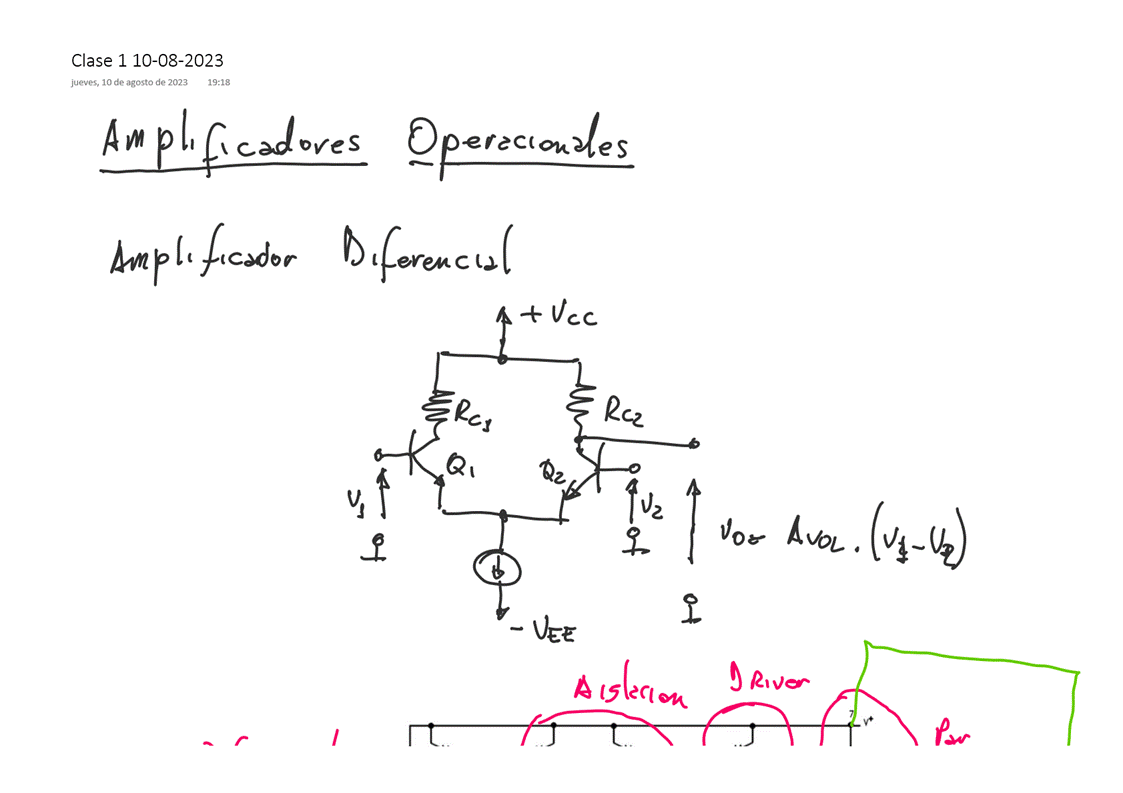 Clase 1 10-08-2023
jueves, 10 de agosto de 2023 19:18
Amplificadores Operacionales
Amplificador Diferencial
+ VCC
RC1
RC2
Q1
Q2
V1
V2
vo= AVOL. (V1-V2)
- VEE
Aislacion
DRiver
7
V+
Par